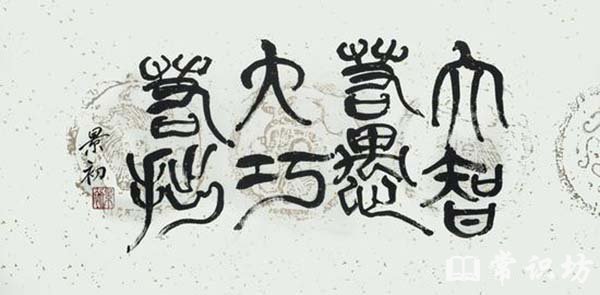 大智
若愚
大巧
若拙
景初
常识坊